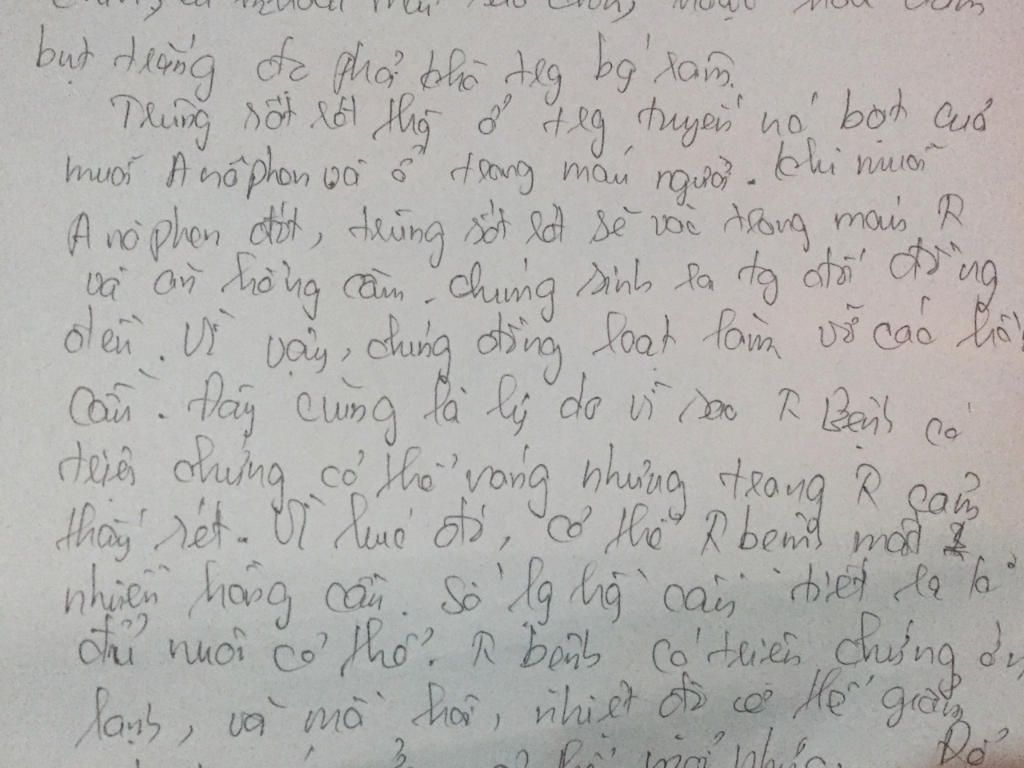 bụt trắng đc phơi khô trg bg
Trùng sốt rét thg ở trg tuyến nc bọt của
muỗi Anôphen và ở trong máu người. khi muỗi
Anôphen đốt, trùng sốt rét sẽ vào trong máu R
và ăn hồng cầu. chúng sinh ra tg đối đồng
đều. Vì vậy, chúng đồng loạt làm vỡ các hồng
cầu. Đây cũng là lý do vì sao R Bệnh có
triệu chứng cơ thể vang nhưng trong R cảm
thấy rét. Vì lúc đó, cơ thể R bệnh mất
nhiều hồng cầu. Số lg hg cầu
đủ nuôi cơ thể. R bệnh có triệu chứng
lạnh, và mồ hôi, nhiệt độ cơ thể giảm